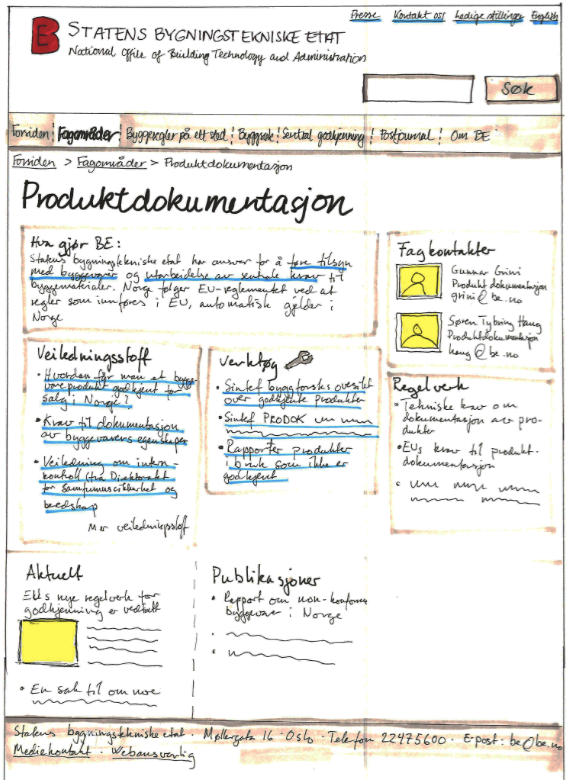 Presse Kontakt oss Ledige stillinger English
B STATENS BYGNINGSTEKNISKE ETAT
National Office of Building Technology and Administration
Søk
Forsiden Fagområder Byggeregler på ett sted Byggsøk Sentral godkjenning Postjournal Om BE
Forsiden > Fagområder > Produktdokumentasjon
Produktdokumentasjon
Hva gjør BE:
Statens bygningstekniske etat har ansvar for å føre tilsyn
med byggevarer og utarbeidelse av sentrale krav til
byggmaterialer. Norge følger EU-reglementet ved at
regler som innføres i EU, automatisk gjelder i
Norge
Fagkontakter
Gunnar Grini
Produktdokumentasjon
grini@be.no
Søren Tybring Haug
Produktdokumentasjon
haug@be.no
Veiledningsstoff
• Hvordan får man et bygge
vareprodukt godkjent for
salg i Norge?
• Krav til dokumentasjon
av byggevarens egenskaper
• Veiledning om intern-
kontroll (fra Direktoratet
for Samfunnssikkerhet og
beredskap
Mer veiledningsstoff
Verktøy
• Sintef byggforsks oversikt
over godkjente produkter
• Sintef PRODOK
• Rapporter produkter
i bruk som ikke er
godkjent
Regelverk
• Tekniske krav om
dokumentasjon av pro-
dukter
• EUs krav til produkt-
dokumentasjon
Aktuelt
EUs nye regelverk for
godkjenning er vedtatt
• En sak til om noe
Publikasjoner
• Rapport om non-konforme
byggevarer i Norge
Statens bygningstekniske etat · Møllergata 16 · Oslo · Telefon 22475600 · E-post: be@be.no
Mediekontakt · Webansvarlig